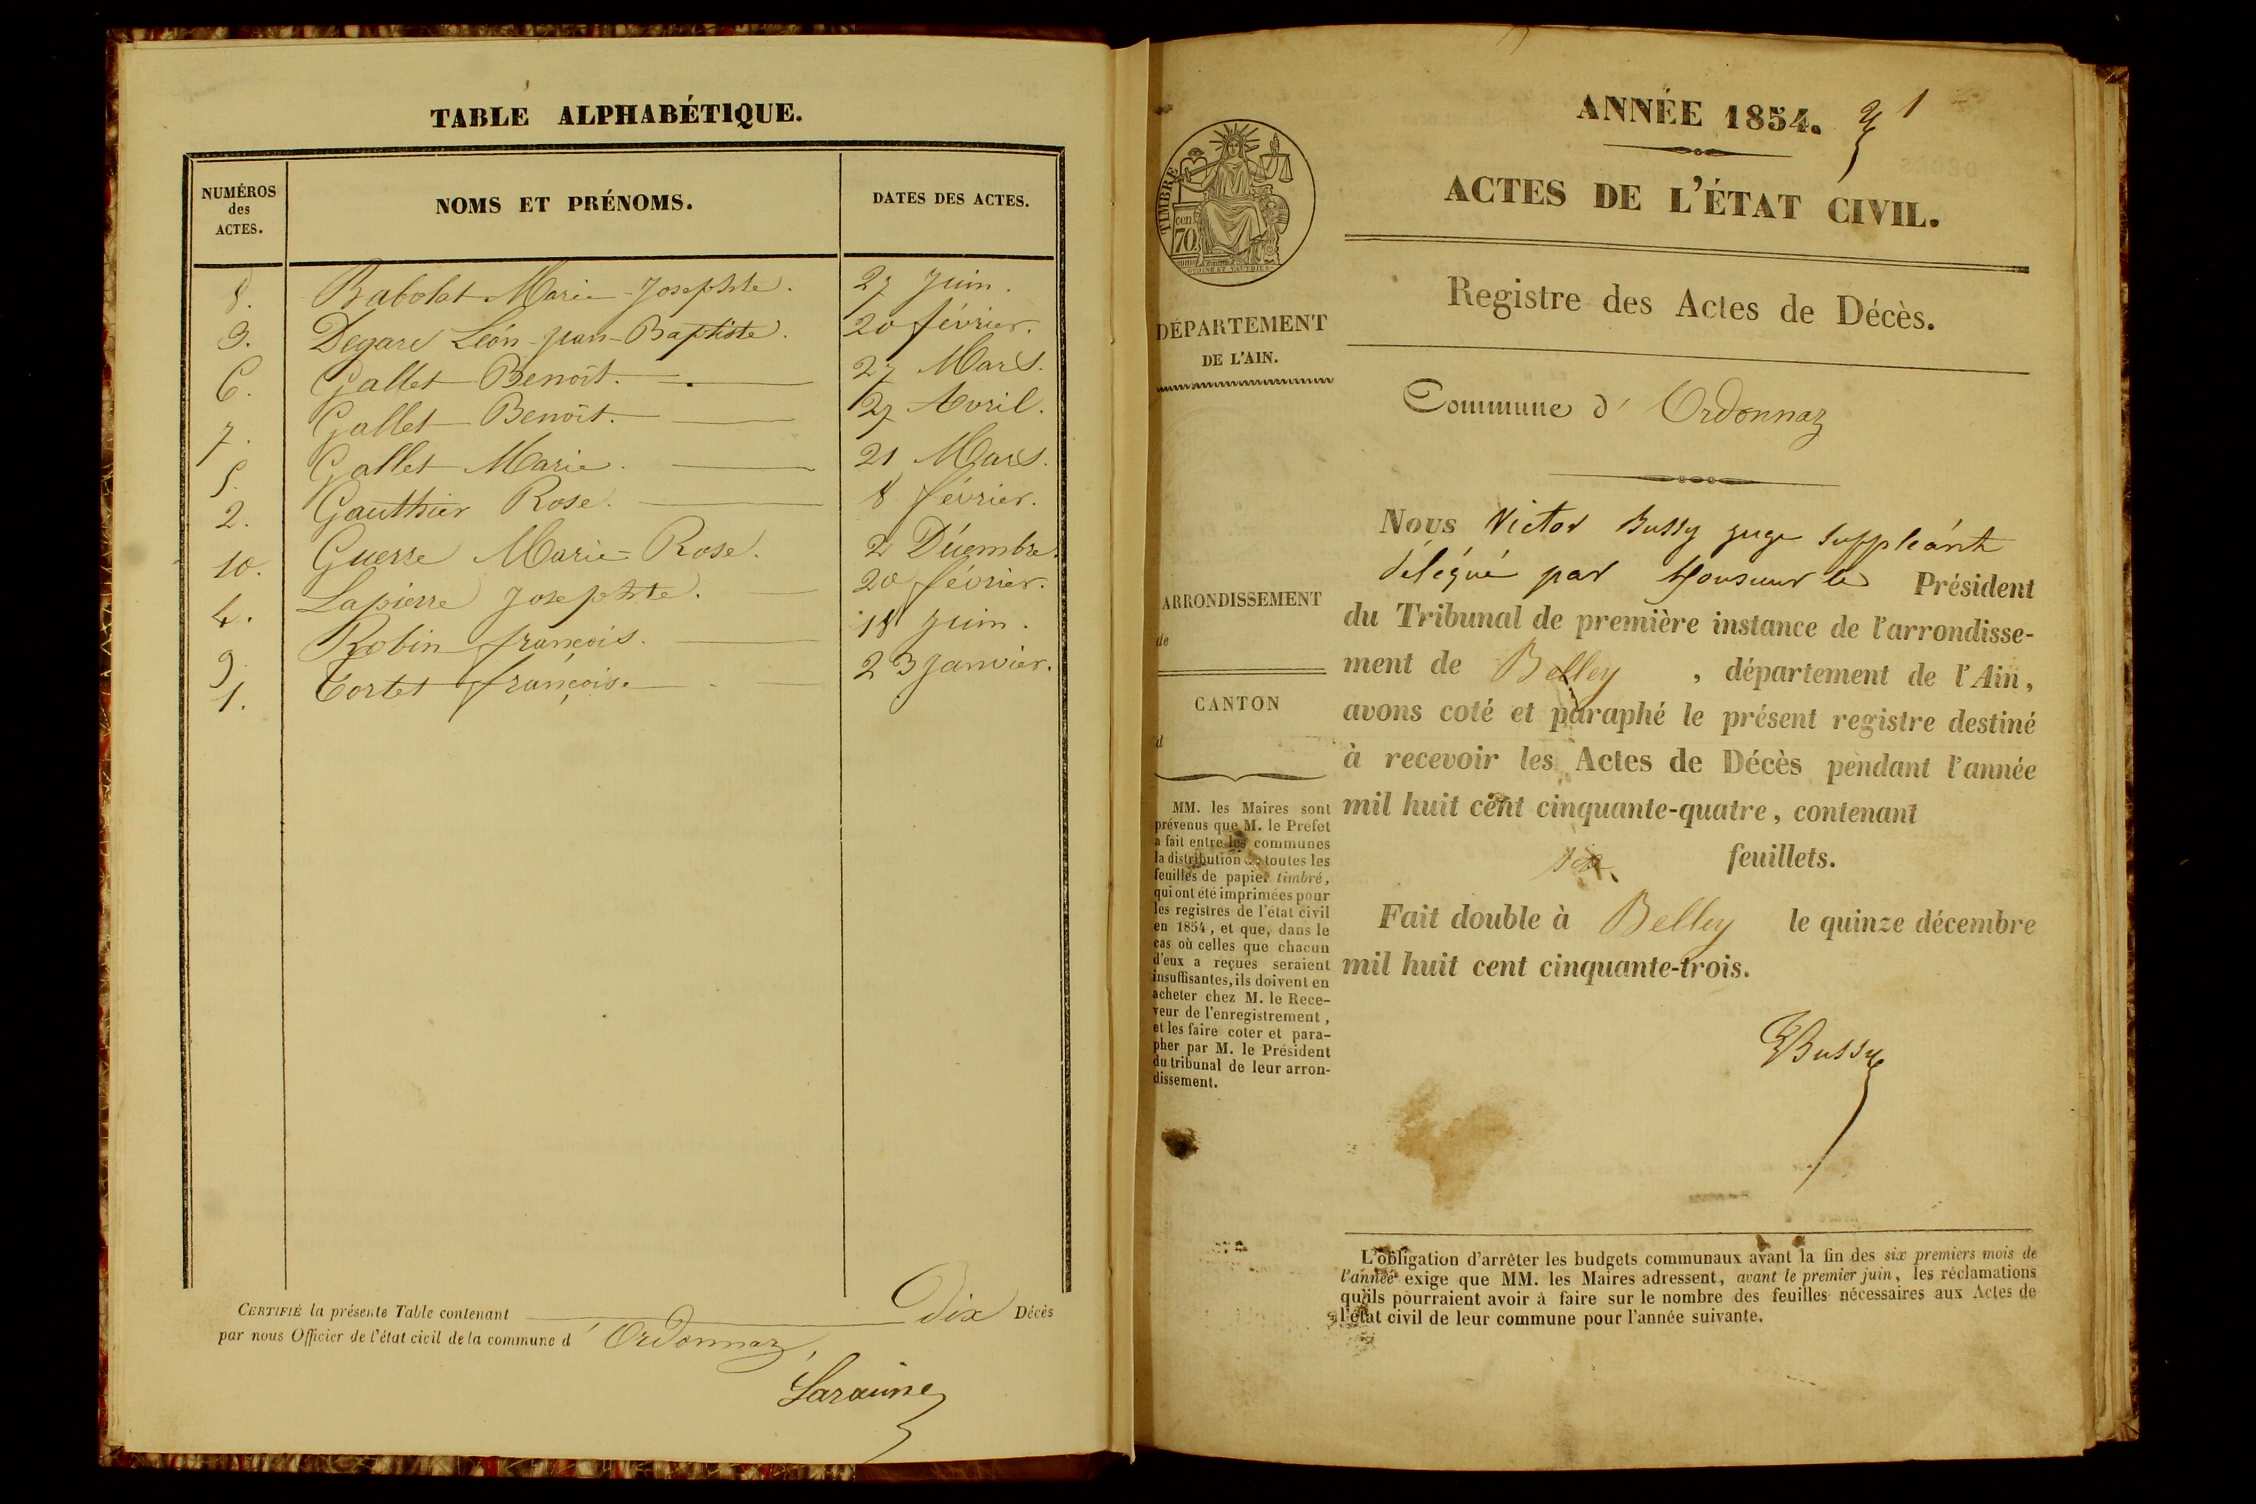 TABLE ALPHABÉTIQUE.
NUMÉROS des ACTES.
NOMS ET PRÉNOMS.
DATES DES ACTES.
8. Babolat Marie-Josephte. 27 Juin.
3. Degare Léon-Jean-Baptiste. 20 février.
6. Gallet Benoît. 27 Mars.
7. Gallet Benoît. 27 Avril.
5. Gallet Marie. 21 Mars.
2. Gauthier Rose. 8 février.
10. Guerre Marie-Rose. 2 Décembre.
4. Lapierre Josephte. 20 février.
9. Robin françois. 18 Juin.
1. Tortet françois. 23 Janvier.
CERTIFIÉ la présente Table contenant dix Décès
par nous Officier de l'état civil de la commune d'Ordonnaz,
ANNÉE 1854. 1
ACTES DE L'ÉTAT CIVIL.
TIMBRE
70
DÉPARTEMENT
DE L'AIN.
ARRONDISSEMENT
de
CANTON
d
MM. les Maires sont
prévenus que M. le Préfet
a fait entre les communes
la distribution de toutes les
feuilles de papier timbré,
qui ont été imprimées pour
les registres de l'état civil
en 1854, et que, dans le
cas où celles que chacun
d'eux a reçues seraient
insuffisantes, ils doivent en
acheter chez M. le Rece-
veur de l'enregistrement,
et les faire coter et para-
pher par M. le Président
du tribunal de leur arron-
dissement.
Registre des Actes de Décès.
Commune d'Ordonnaz
Nous Victor Bussy juge suppléant
délégué par Monsieur le Président
du Tribunal de première instance de l'arrondisse-
ment de Belley, département de l'Ain,
avons coté et paraphé le présent registre destiné
à recevoir les Actes de Décès pendant l'année
mil huit cent cinquante-quatre, contenant
six feuillets.
Fait double à Belley le quinze décembre
mil huit cent cinquante-trois.
VBussy
L'obligation d'arrêter les budgets communaux avant la fin des six premiers mois de
l'année exige que MM. les Maires adressent, avant le premier juin, les réclamations
qu'ils pourraient avoir à faire sur le nombre des feuilles nécessaires aux Actes de
l'état civil de leur commune pour l'année suivante.